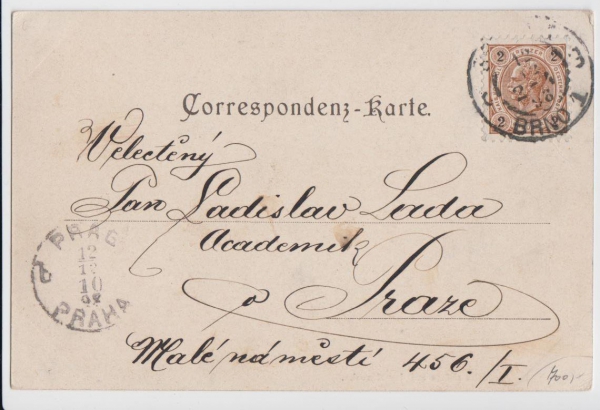 2
2
BRNO 1
2
2
Correspondenz-Karte.
Velectěný
Pan Ladislav Lada
Academik
v Praze
Malé náměstí 456./I.
PRAG
12
10
98
PRAHA
700,-